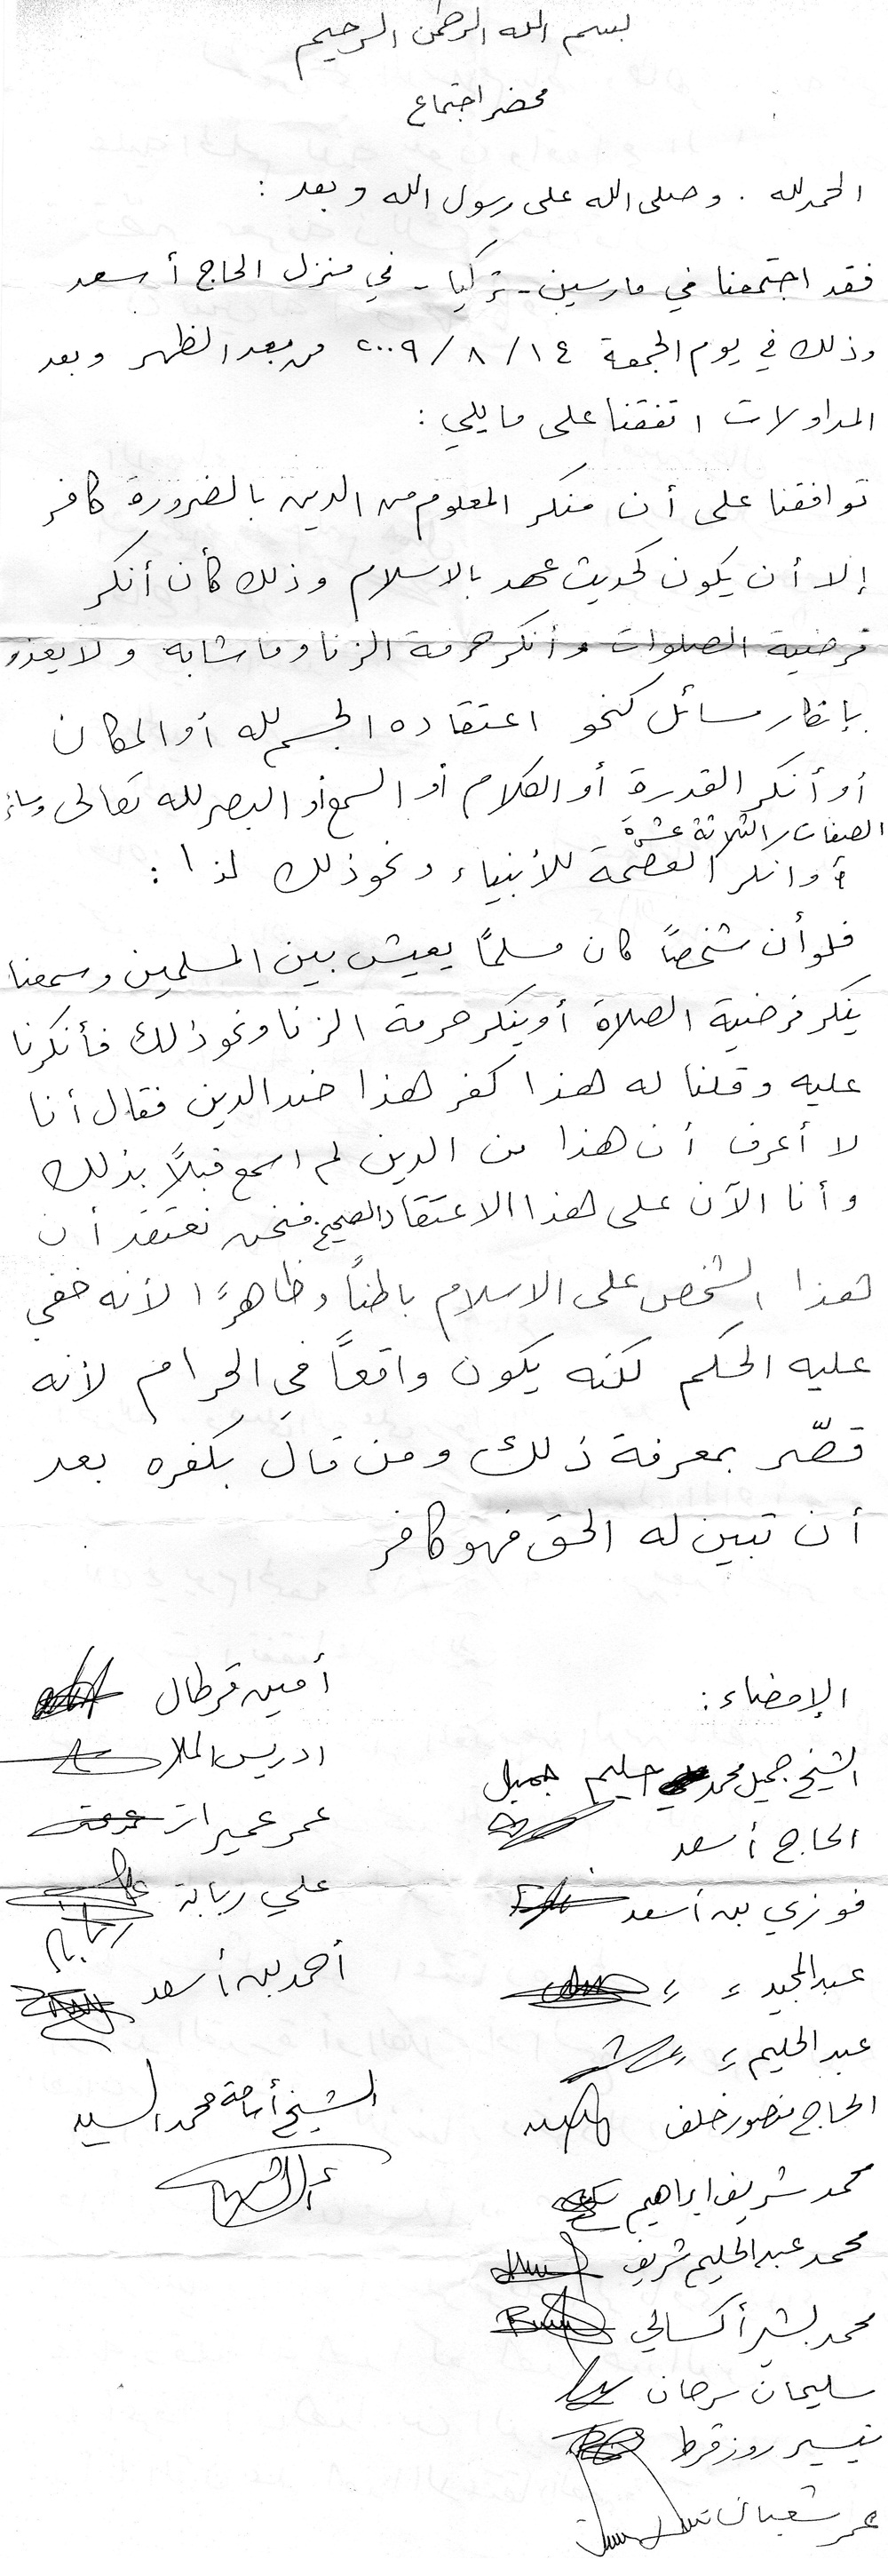 بسم الله الرحمن الرحيم
محضر اجتماع
الحمد لله . وصلى الله على رسول الله وبعد :
فقد اجتمعنا في مارسين - تركيا - في منزل الحاج أسعد
وذلك في يوم الجمعة ١٤ / ٨ / ٢٠٠٩ من بعد الظهر وبعد
المداولات اتفقنا على مايلي :
توافقنا على أن منكر المعلوم من الدين بالضرورة كافر
إلا أن يكون كحديث عهد بالاسلام وذلك كأن أنكر
فرضية الصلوات وأنكر حرمة الزنا وما شابه ولا يعذر
بإنكار مسائل كنحو اعتقاده الجسم لله أو المكان
أو أنكر القدرة أو الكلام أو السمع أو البصر لله تعالى وسائر
الصفات الثلاثة عشرة
أو انكر العصمة للأنبياء ونحو ذلك لذا :
فلو أن شخصاً كان مسلماً يعيش بين المسلمين وسمعنا
ينكر فرضية الصلاة أو ينكر حرمة الزنا ونحو ذلك فأنكرنا
عليه وقلنا له هذا كفر هذا ضد الدين فقال أنا
لا أعرف أن هذا من الدين لم اسمع قبلاً بذلك
وأنا الآن على هذا الاعتقاد الصحيح فنحن نعتقد أن
هذا الشخص على الاسلام باطناً وظاهراً لأنه خفي
عليه الحكم لكنه يكون واقعاً في الحرام لأنه
قصّر بمعرفة ذلك ومن قال بكفره بعد
أن تبين له الحق فهو كافر
الإمضاء :
الشيخ جميل محمد حليم جميل
الحاج أسعد
فوزي بن أسعد
عبد المجيد = =
عبد الحليم = =
الحاج منصور خلف
محمد شريف ابراهيم
محمد عبد الحليم شريف
محمد بشير أكسالي
سليمان سرحان
تيسير روزقرط
عمر شعبان
أمين قرطال
ادريس الملا
عمر عمير از
علي ربابة
أحمد بن أسعد
الشيخ أسامة محمد السيد